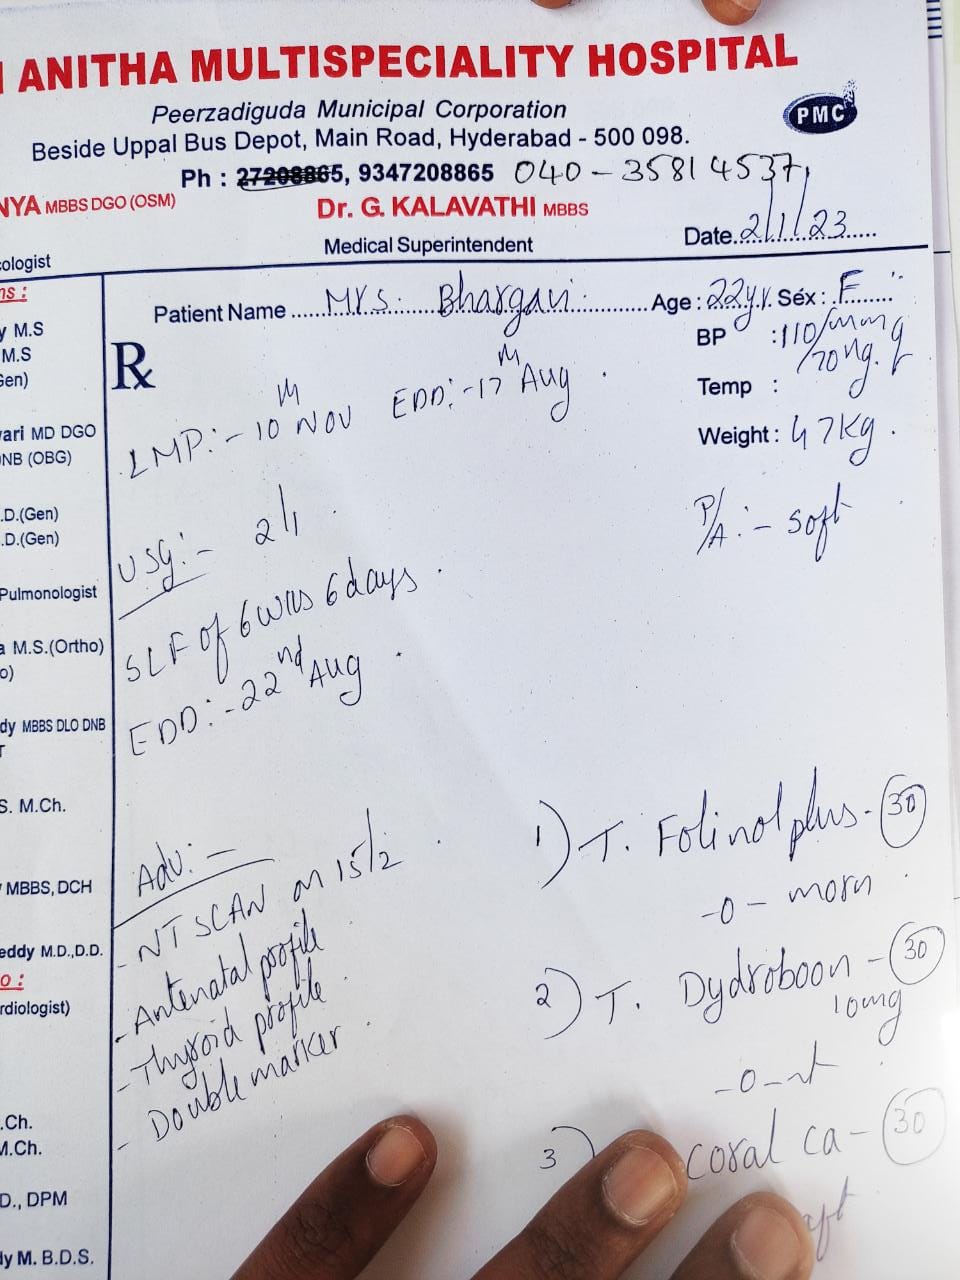 I ANITHA MULTISPECIALITY HOSPITAL
Peerzadiguda Municipal Corporation
PMC
Beside Uppal Bus Depot, Main Road, Hyderabad - 500 098.
Ph : 27208865, 9347208865 040 - 35814537
NYA MBBS DGO (OSM)
Dr. G. KALAVATHI MBBS
Medical Superintendent
Date..2/1/23.....
cologist
ns :
Patient Name ....Mrs. Bhargavi........ Age : 22yr. Sex : F
y M.S
M.S
Gen)
vari MD DGO
NB (OBG)
.D.(Gen)
.D.(Gen)
Pulmonologist
a M.S.(Ortho)
o)
dy MBBS DLO DNB
T
S. M.Ch.
MBBS, DCH
eddy M.D.,D.D.
o :
rdiologist)
.Ch.
M.Ch.
D., DPM
dy M. B.D.S.
Rx
BP : 110/70 mmHg
Temp :
Weight : 47kg.
P/A :- soft
LMP:- 10th NOV EDD:- 17th Aug.
USG:- 2/1
SLF of 6wks 6days.
EDD:- 22nd Aug.
Adv:-
- NT SCAN on 15/2
- Antenatal profile
- Thyroid profile
- Double marker
1) T. Folinol plus - 30
-0- morn
2) T. Dydroboon - 30
10mg
-0-nt
3) coral ca - 30
aft